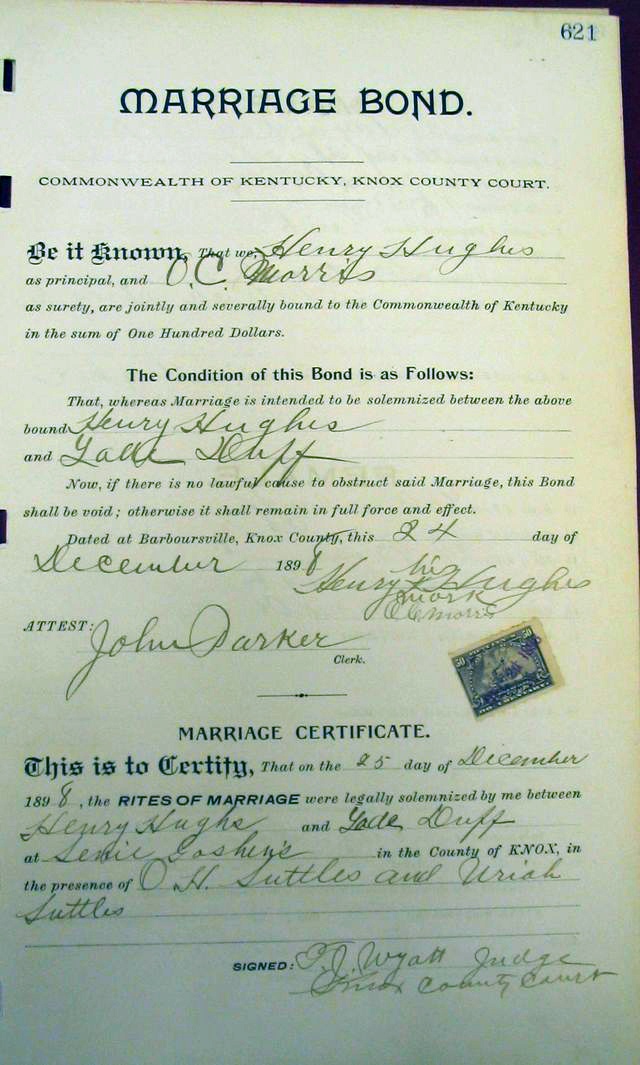 621
MARRIAGE BOND.
COMMONWEALTH OF KENTUCKY, KNOX COUNTY COURT.
Be it Known, That we, Henry Hughes
as principal, and O. C. Morris
as surety, are jointly and severally bound to the Commonwealth of Kentucky
in the sum of One Hundred Dollars.
The Condition of this Bond is as Follows:
That, whereas Marriage is intended to be solemnized between the above
bound Henry Hughes
and Duff
Now, if there is no lawful cause to obstruct said Marriage, this Bond
shall be void; otherwise it shall remain in full force and effect.
Dated at Barboursville, Knox County, this 24 day of
December 1898
his
Henry X Hughes
mark
O C Morris
ATTEST:
John Parker
Clerk.
50 50
MARRIAGE CERTIFICATE.
This is to Certify, That on the 25 day of December
1898, the RITES OF MARRIAGE were legally solemnized by me between
Henry Hughs and Duff
at in the County of KNOX, in
the presence of O. H. Suttles and Uriah
Suttles
SIGNED: T. J. Wyatt Judge
Knox County Court